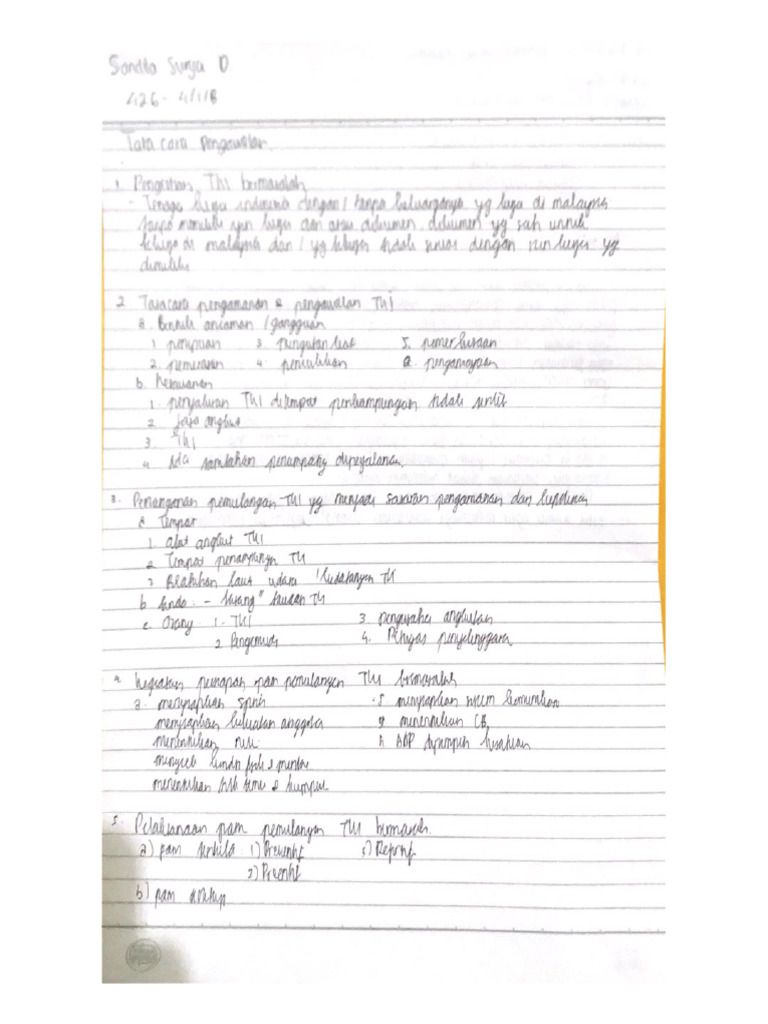 Sandha Surya D
426 - 4/11B
Tata cara pengawalan
1. Pengertian TKI bermasalah
- Tenaga kerja indonesia dengan / tanpa keluarganya yg kerja di malaysia
tanpa memiliki ijin kerja dan atau dokumen dokumen yg sah untuk
bekerja di malaysia dan / yg bekerja tidak sesuai dengan izin kerja yg
dimiliki
2. Tatacara pengamanan & pengawalan TKI
a. Bentuk ancaman / gangguan
1 penipuan 3. pungutan liar 5. pemerkosaan
2. pemerasan 4. penculikan 6. penganiayaan
b. Kerawanan
1. penyaluran TKI ditempat penampungan tidak tertib
2 jasa angkut
3 TKI
4 Ada tambahan penumpang diperjalanan
3. Penanganan pemulangan TKI yg menjadi sasaran pengamanan dan
a Tempat
1. alat angkut TKI
2 Tempat penampungan TKI
3 Pelabuhan laut udara / kedatangan TKI
b benda - barang" bawaan TKI
c. Orang 1. TKI 3. pengusaha angkutan
2 Pengemudi 4. Petugas penyelenggara
4. kegiatan penerapan pam pemulangan TKI bermasalah
a. menyiapkan sprin . 5 menyiapkan sistem komunikasi
menyiapkan kekuatan anggota g menentukan CB
menentukan rute h APP
mengecek kondisi fisik & mental
menentukan titik temu & kumpul
5. Pelaksanaan pam pemulangan TKI bermasalah
a) pam terbuka 1) Preemtif 3) Represif
2) Preventif
b) pam tertutup